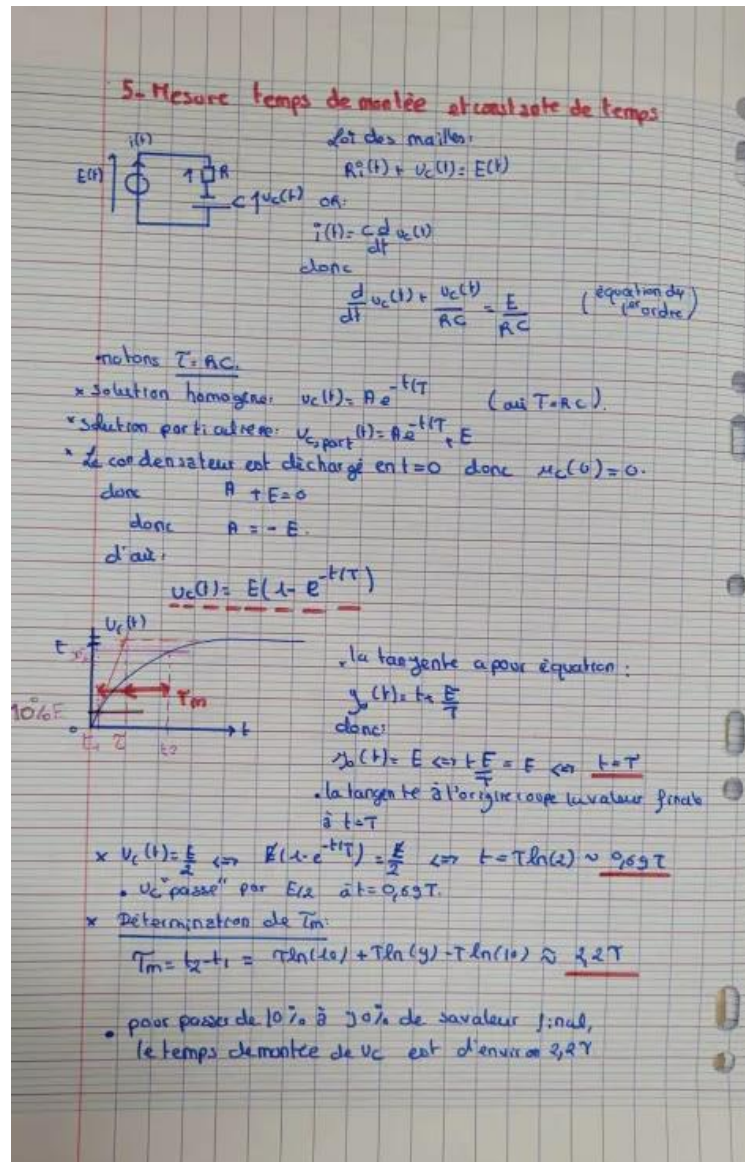 5- Mesure temps de montée et constante de temps
i(t)
E(t)
R
C
uc(t)
Loi des mailles:
Ri(t) + uc(t) = E(t)
OR:
i(t) = C d/dt uc(t)
donc
d/dt uc(t) + uc(t)/RC = E/RC (équation du 1er ordre)
notons τ = RC.
* solution homogène: uc(t) = A e^-t/τ (où τ = RC).
* solution particulière: uc,part(t) = A e^-t/τ + E
* Le condensateur est déchargé en t=0 donc uc(0) = 0.
donc A + E = 0
donc A = - E.
d'où:
uc(t) = E(1 - e^-t/τ)
Uc(t)
E
τm
10% E
0
t1 τ t2
t
. la tangente a pour équation :
y0(t) = t × E/τ
donc:
y0(t) = E <=> t E/τ = E <=> t = τ
. la tangente à l'origine coupe la valeur finale
à t = τ
* Uc(t) = E/2 <=> E(1 - e^-t/τ) = E/2 <=> t = τ ln(2) ~ 0,69 τ
. Uc "passe" par E/2 à t = 0,69 τ.
* Détermination de τm:
τm = t2 - t1 = τ ln(10) + τ ln(9) - τ ln(10) ≈ 2,2 τ
. pour passer de 10% à 90% de sa valeur final,
le temps de montée de Uc est d'environ 2,2 τ